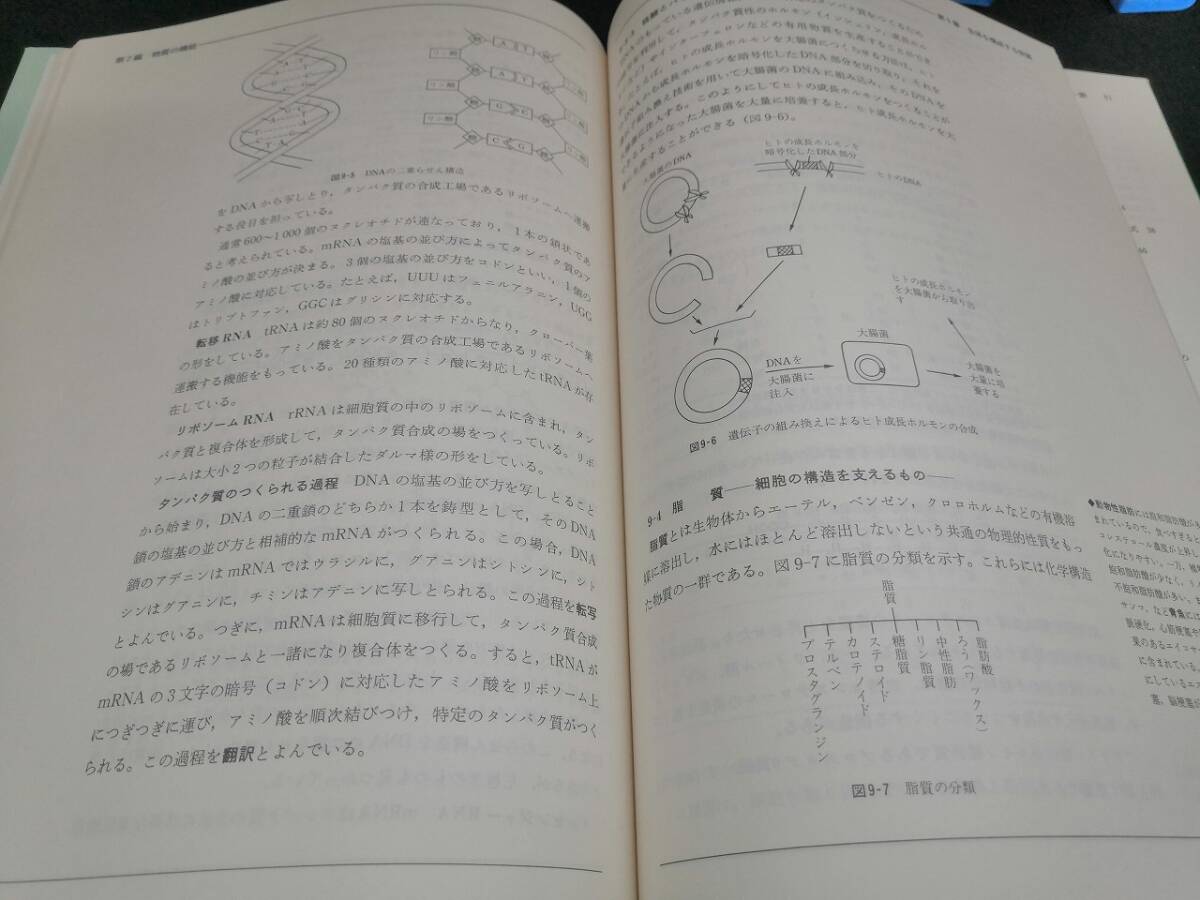 第2編 物質の機能
リン酸
A
T
A
T
G
C
C
G
図9-5 DNAの二重らせん構造
をDNAから写しとり，タンパク質の合成工場であるリボゾームへ運搬
する役目を担っている。
通常600～1000個のヌクレオチドが連なっており，1本の鎖状であ
ると考えられている。mRNAの塩基の並び方によってタンパク質のア
ミノ酸の並び方が決まる。3個の塩基の並び方をコドンといい，1個の
アミノ酸に対応している。たとえば，UUUはフェニルアラニン，UGG
はトリプトファン，GGCはグリシンに対応する。
転移RNA tRNAは約80個のヌクレオチドからなり，クローバー葉
の形をしている。アミノ酸をタンパク質の合成工場であるリボゾームへ
運搬する機能をもっている。20種類のアミノ酸に対応したtRNAが存
在している。
リボゾームRNA rRNAは細胞質の中のリボゾームに含まれ，タン
パク質と複合体を形成して，タンパク質合成の場をつくっている。リボ
ゾームは大小2つの粒子が結合したダルマ様の形をしている。
タンパク質のつくられる過程 DNAの塩基の並び方を写しとること
から始まり，DNAの二重鎖のどちらか1本を鋳型として，そのDNA
鎖の塩基の並び方と相補的なmRNAがつくられる。この場合，DNA
鎖のアデニンはmRNAではウラシルに，グアニンはシトシンに，シト
シンはグアニンに，チミンはアデニンに写しとられる。この過程を転写
とよんでいる。つぎに，mRNAは細胞質に移行して，タンパク質合成
の場であるリボゾームと一諸になり複合体をつくる。すると，tRNAが
mRNAの3文字の暗号（コドン）に対応したアミノ酸をリボゾーム上
につぎつぎに運び，アミノ酸を順次結びつけ，特定のタンパク質がつく
られる。この過程を翻訳とよんでいる。
を利用して，タンパク質性のホルモン（インシュリン，成長ホル
モン）やインターフェロンなどの有用物質を生産することができ
る。たとえば，ヒトの成長ホルモンを大腸菌につくらせる方法は，ヒト
のDNAから成長ホルモンを暗号化したDNA部分を切り取り，それを
遺伝子組み換え技術を用いて大腸菌のDNAに組み込み，そのDNAを
大腸菌に注入する。このようにしてヒトの成長ホルモンをつくることが
できるようになった大腸菌を大量に培養すると，ヒト成長ホルモンを大
量に生産することができる（図9-6）。
大腸菌のDNA
ヒトの成長ホルモンを
暗号化したDNA部分
ヒトのDNA
ヒトの成長ホルモン
を大腸菌から取り出
す
DNAを
大腸菌に
注入
大腸菌
大腸菌を
大量に培
養する
図9-6 遺伝子の組み換えによるヒト成長ホルモンの合成
9-4 脂 質――細胞の構造を支えるもの――
脂質とは生物体からエーテル，ベンゼン，クロロホルムなどの有機溶
媒に溶出し，水にはほとんど溶出しないという共通の物理的性質をもっ
た物質の一群である。図9-7に脂質の分類を示す。これらには化学構造
脂質
脂肪酸
ろう（ワックス）
中性脂肪
リン脂質
糖脂質
ステロイド
カロテノイド
テルペン
プロスタグランジン
図9-7 脂質の分類
●動物性脂肪には飽和脂肪酸が
まれているので，食べすぎると
コレステロール濃度が上昇し
化になりやすい。一方，植
飽和脂肪酸が少なく，
不飽和脂肪酸が多い。
サンマ，など青魚には
脈硬化，心筋梗塞や
果のあるエイコサ
に含まれている。
にしているエス
塞，脳梗塞が
索 引